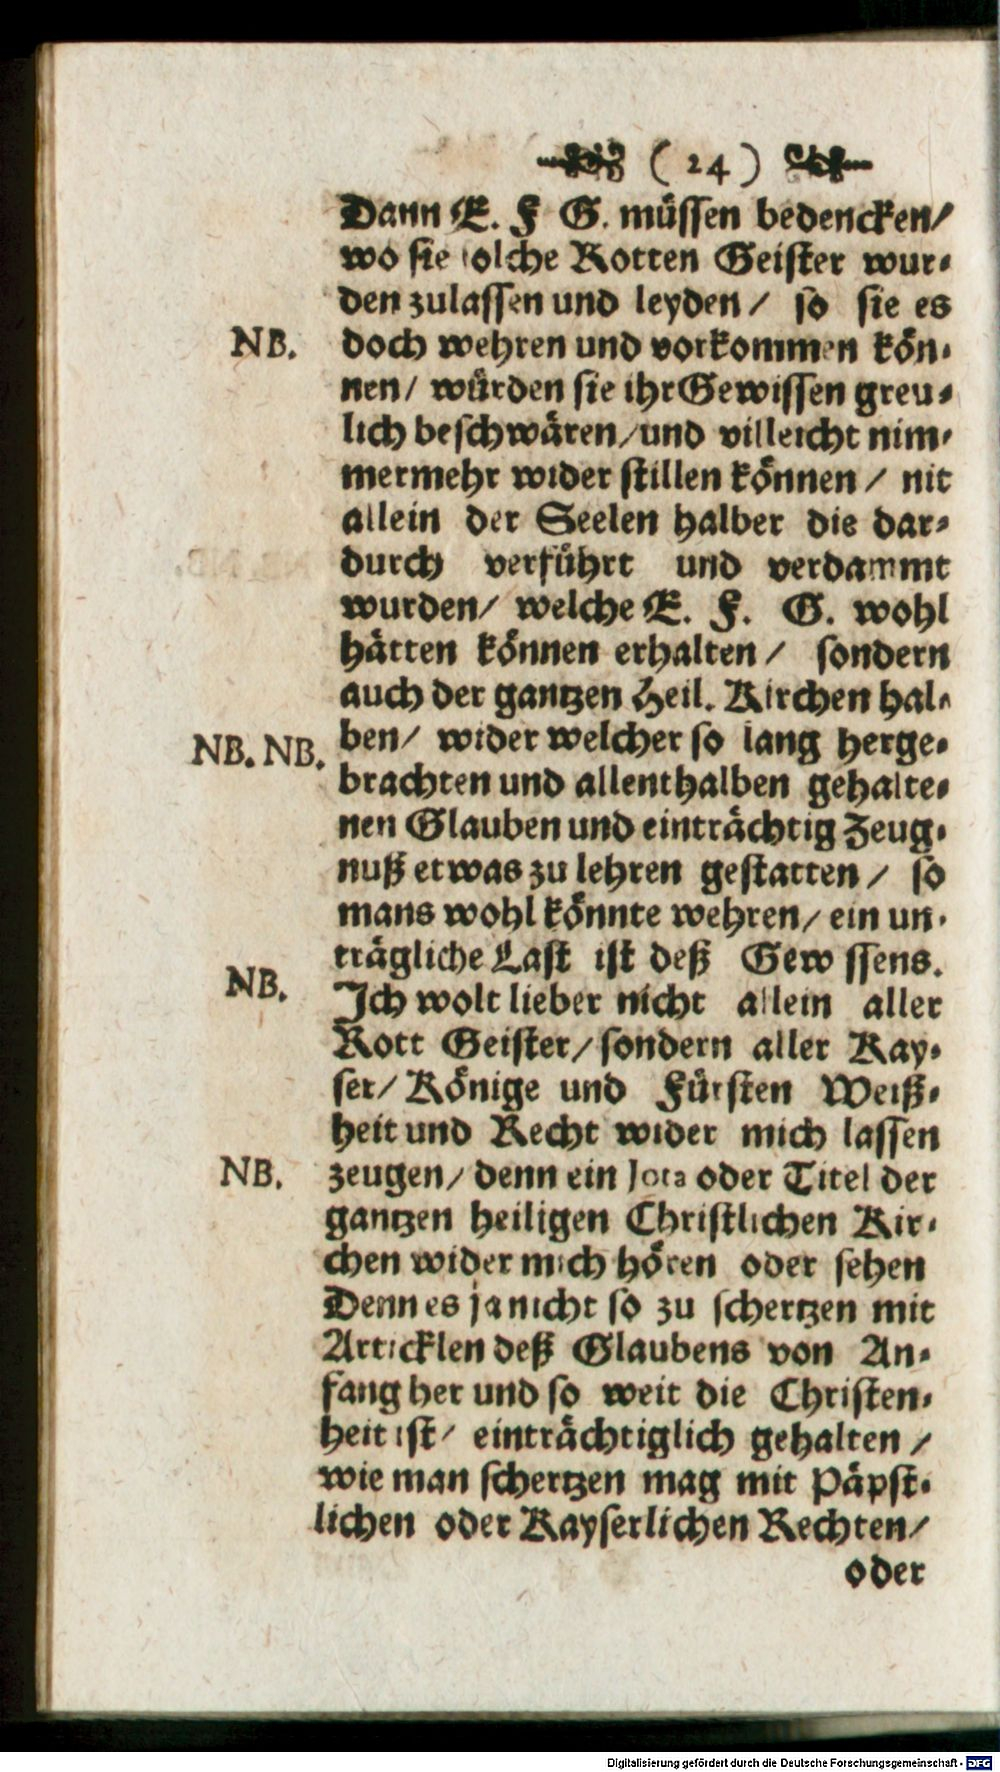 ( 24 )
Dann E. F G. müssen bedencken/
wo sie solche Rotten Geister wur-
den zulassen und leyden/ so sie es
NB. doch wehren und vorkommen kön-
nen/ würden sie ihr Gewissen greu-
lich beschwären/und villeicht nim-
mermehr wider stillen können/ nit
allein der Seelen halber die dar-
durch verführt und verdammt
wurden/ welche E. F. G. wohl
hätten können erhalten/ sondern
auch der gantzen Heil. Kirchen hal-
NB. NB. ben/ wider welcher so lang herge-
brachten und allenthalben gehalte-
nen Glauben und einträchtig Zeug-
nuß etwas zu lehren gestatten/ so
mans wohl könnte wehren/ ein un-
trägliche Last ist deß Gewissens.
NB. Ich wolt lieber nicht allein aller
Rott Geister/sondern aller Kay-
ser/ Könige und Fürsten Weiß-
heit und Recht wider mich lassen
NB. zeugen/ denn ein Jota oder Titel der
gantzen heiligen Christlichen Kir-
chen wider mich hören oder sehen
Denn es ja nicht so zu schertzen mit
Articklen deß Glaubens von An-
fang her und so weit die Christen-
heit ist/ einträchtiglich gehalten/
wie man schertzen mag mit Päpst-
lichen oder Kayserlichen Rechten/
oder
Digitalisierung gefördert durch die Deutsche Forschungsgemeinschaft - DFG